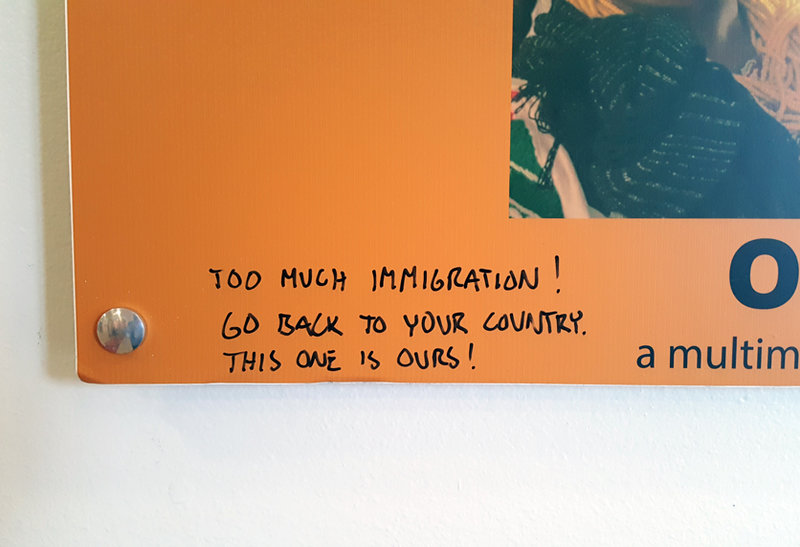 TOO MUCH IMMIGRATION!
GO BACK TO YOUR COUNTRY.
THIS ONE IS OURS!
a